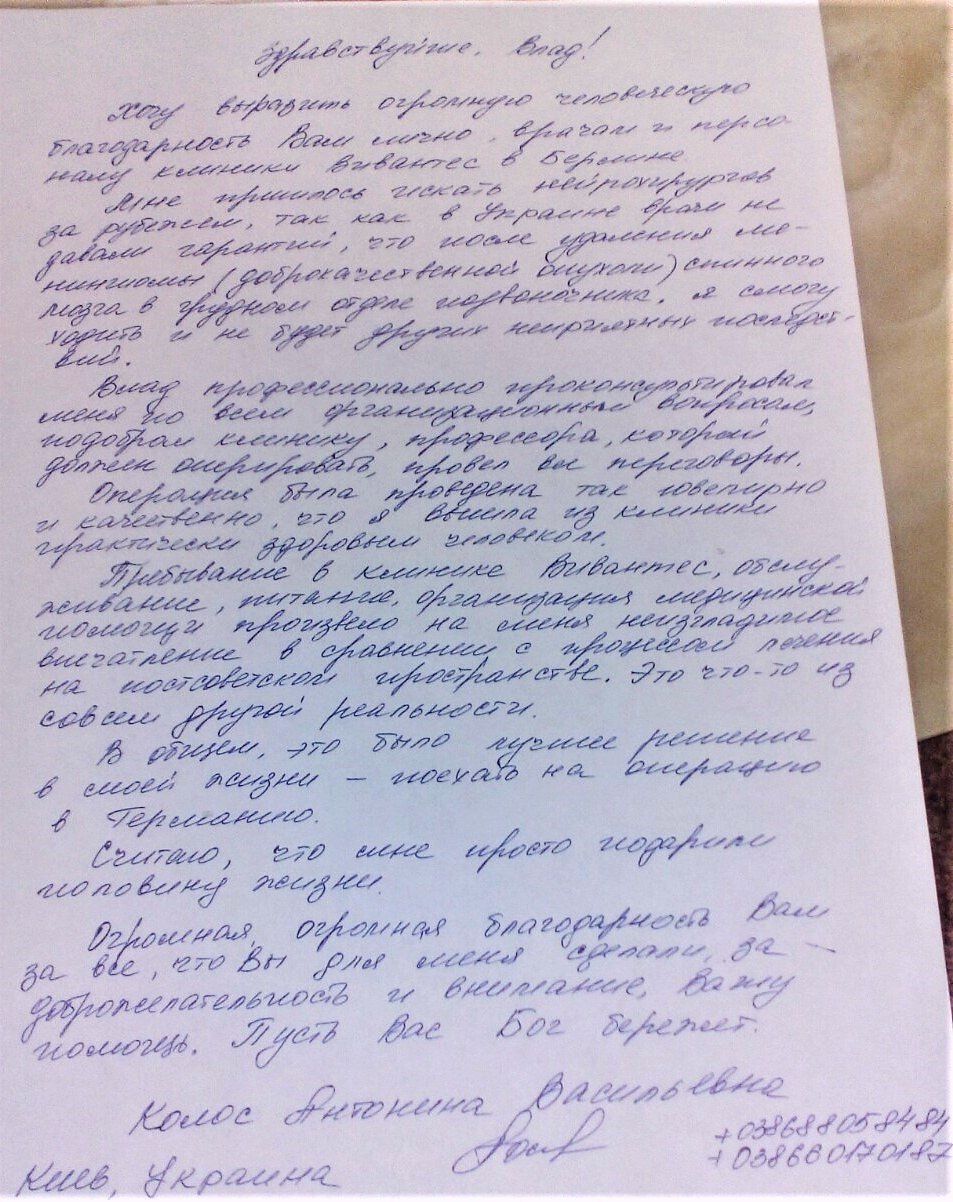 Здравствуйте, Влад!
Хочу выразить огромную человеческую
благодарность Вам лично, врачам и персо-
налу клиники Вивантес в Берлине.
Мне пришлось искать нейрохирургов
за рубежем, так как в Украине врачи не
давали гарантий, что после удаления ме-
нингиомы (доброкачественной опухоли) спинного
мозга в грудном отделе позвоночника, я смогу
ходить и не будет других неприятных последст-
вий.
Влад профессионально проконсультировал
меня по всем организационным вопросам,
подобрал клинику, профессора, который
должен оперировать, провел все переговоры.
Операция была проведена так ювелирно
и качественно, что я вышла из клиники
практически здоровым человеком.
Пребывание в клинике Вивантес, обслу-
живание, питание, организация медицинской
помощи произвело на меня неизгладимое
впечатление в сравнении с процессом лечения
на постсоветском пространстве. Это что-то из
совсем другой реальности.
В общем, это было лучшее решение
в моей жизни – поехать на операцию
в Германию.
Считаю, что мне просто подарили
половину жизни.
Огромная, огромная благодарность Вам
за все, что Вы для меня сделали, за –
доброжелательность и внимание, Вашу
помощь. Пусть Вас Бог бережет.
Колос Антонина Васильевна
+038688058484
+038660170187
Киев, Украина